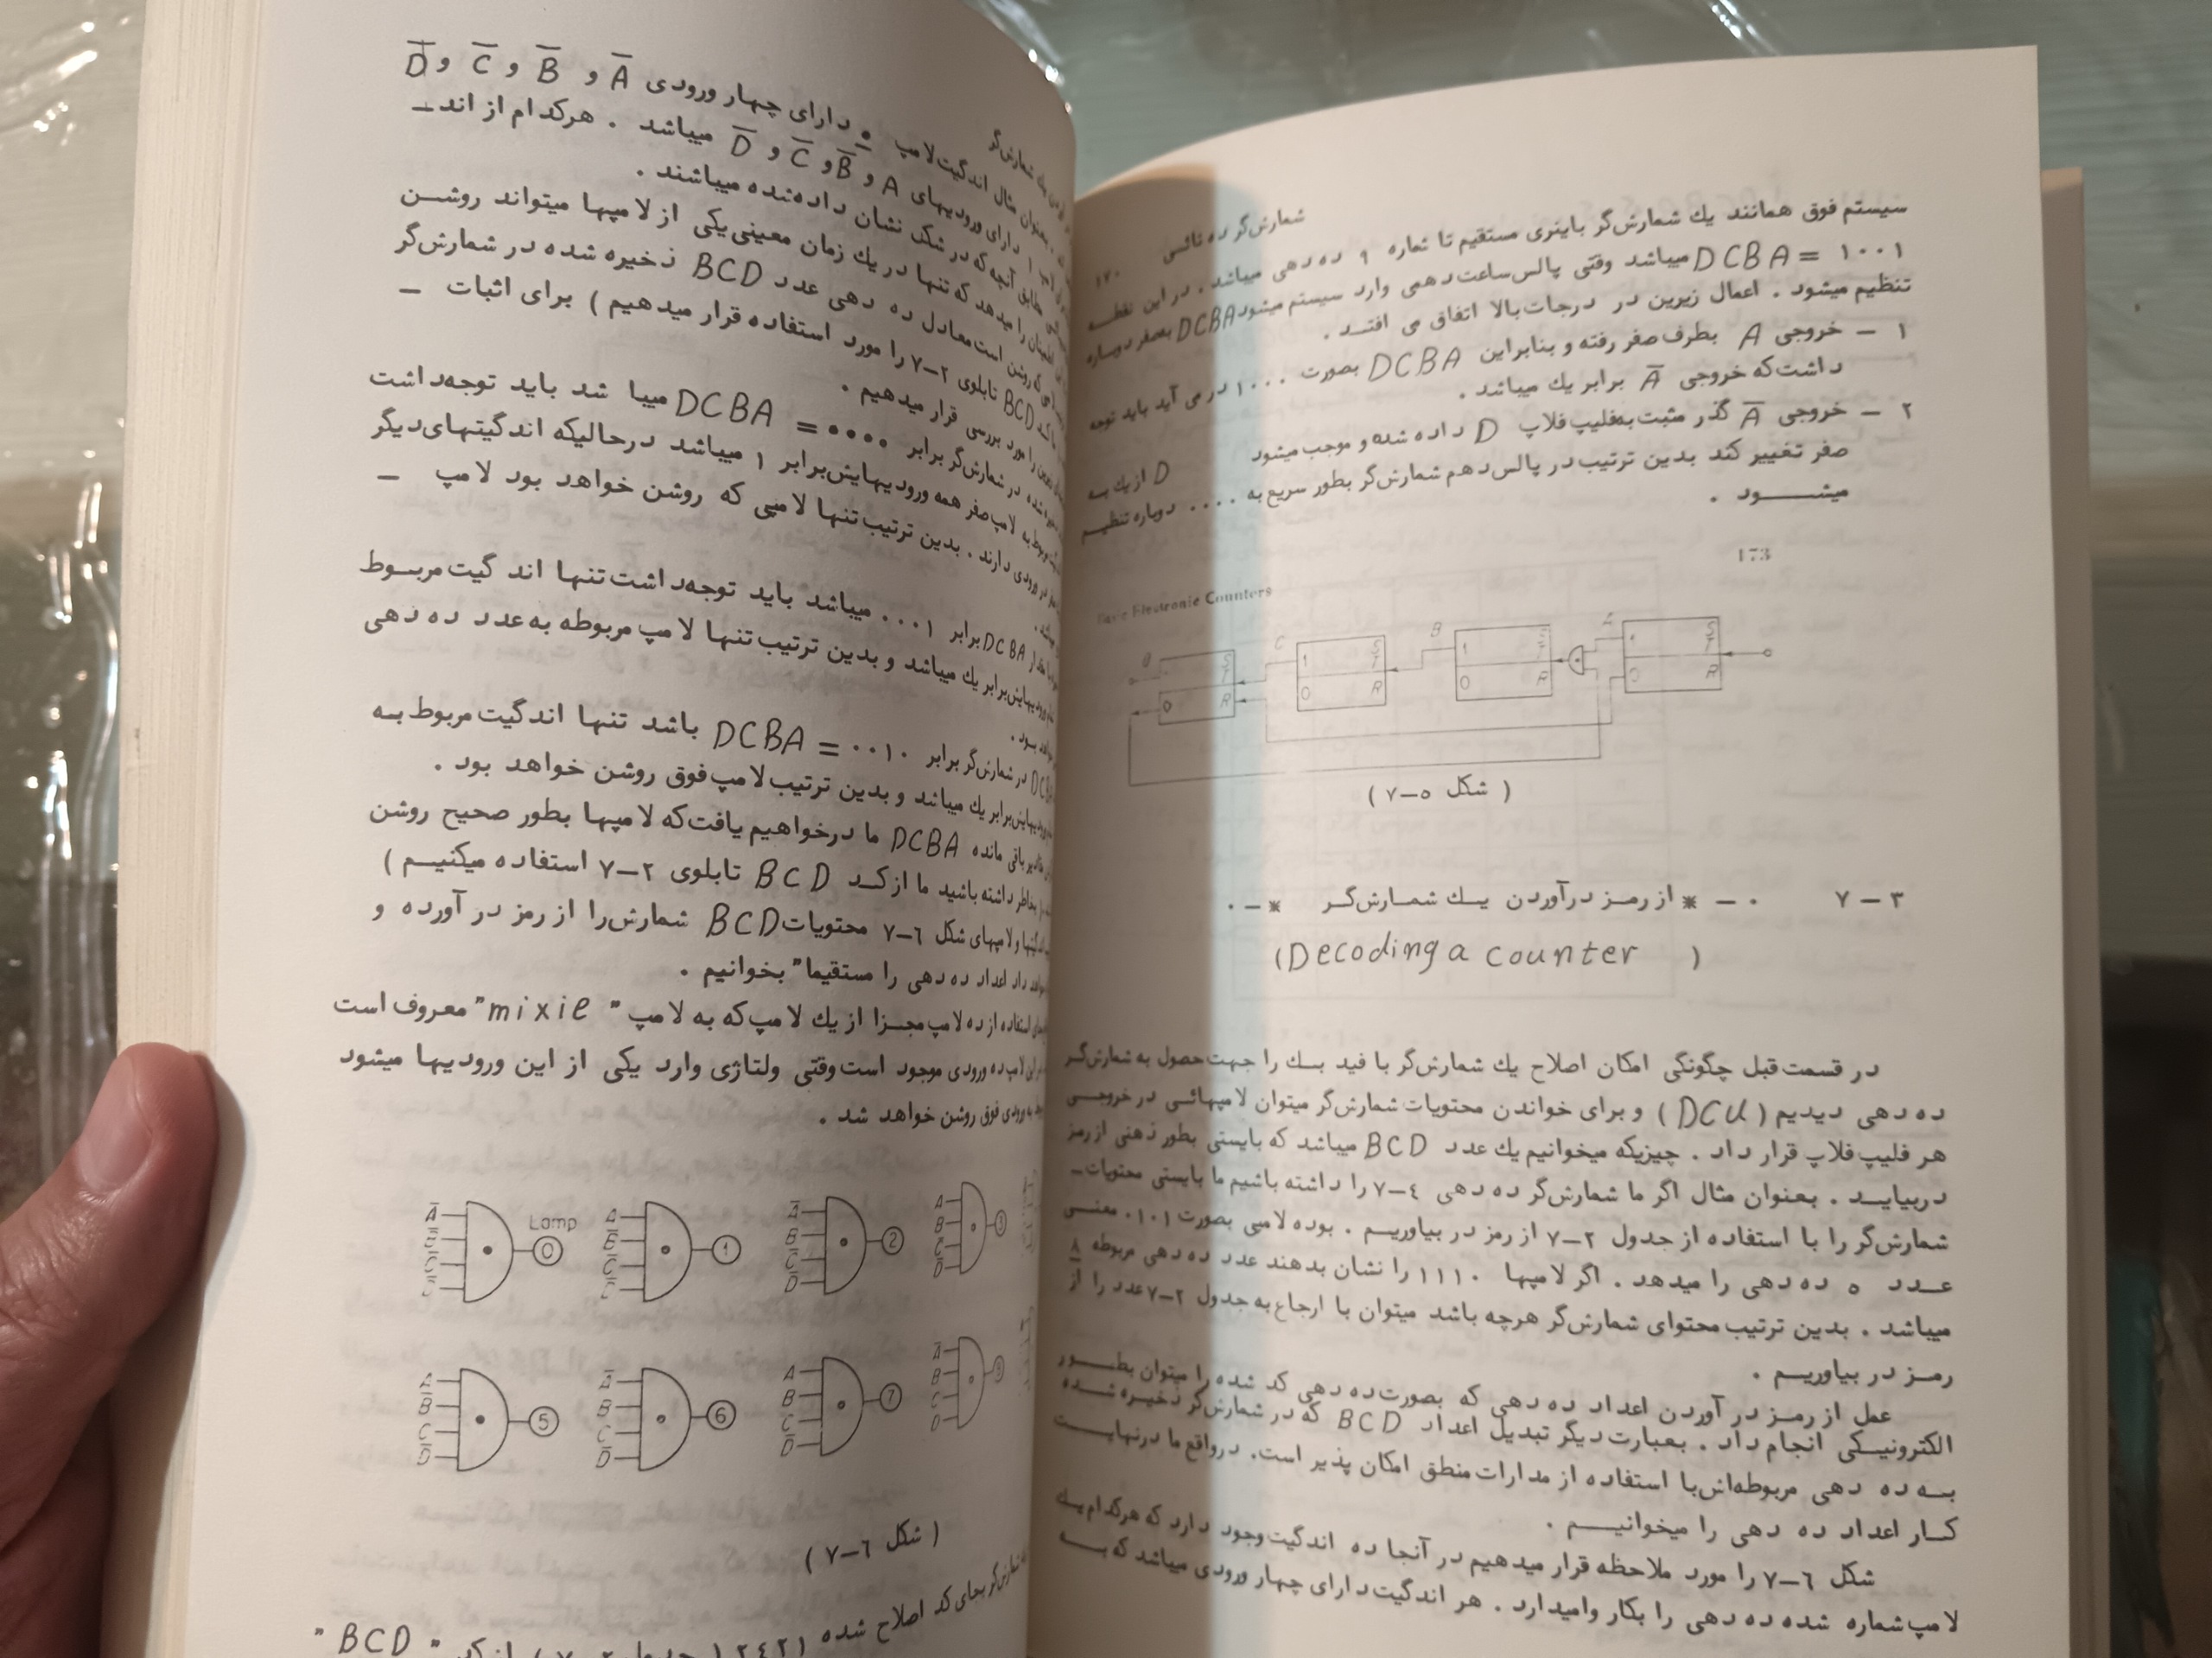 شمارش‌گر ده تائی ١٧٠
سیستم فوق همانند یك شمارش‌گر باینری مستقیم تا شماره ٩ ده دهی میباشد . در این نقطه
DCBA = ١٠٠١ میباشد وقتی پالس‌ساعت دهمی وارد سیستم میشود DCBA بصفر دوباره
تنظیم میشود . اعمال زیرین در درجات بالا اتفاق می افتد .
١ – خروجی A بطرف صفر رفته و بنابراین DCBA بصورت ١٠٠٠ در می آید باید توجه
داشت که خروجی A̅ برابر یك میباشد .
٢ – خروجی A̅ گذر مثبت به‌فلیپ فلاپ D داده شده و موجب میشود D از یك به
صفر تغییر کند بدین ترتیب در پالس دهم شمارش‌گر بطور سریع به ٠٠٠٠ دوباره تنظیم
میشود .
173
Electronic Counters
C B A
S T R 1 0
( شکل ٥–٧ )
٣ – ٧ ٠ – * از رمز درآوردن یك شمارش‌گر * – ٠
(Decoding a counter )
در قسمت قبل چگونگی امکان اصلاح یك شمارش‌گر با فید بك را جهت حصول به شمارش‌گر
ده دهی دیدیم ( DCU ) و برای خواندن محتویات شمارش‌گر میتوان لامپهائی در خروجی
هر فلیپ فلاپ قرار داد . چیزیکه میخوانیم یك عدد BCD میباشد که بایستی بطور ذهنی از رمز
دربیاید . بعنوان مثال اگر ما شمارش‌گر ده دهی ٤–٧ را داشته باشیم ما بایستی محتویات–
شمارش‌گر را با استفاده از جدول ٢–٧ از رمز در بیاوریم . بوده لامپی بصورت ٠١٠١ معنی
عدد ٥ ده دهی را میدهد . اگر لامپها ١١١٠ را نشان بدهند عدد ده دهی مربوطه ٨
میباشد . بدین ترتیب محتوای شمارش‌گر هرچه باشد میتوان با ارجاع به جدول ٢–٧ عدد را از
رمز در بیاوریم .
عمل از رمز در آوردن اعداد ده دهی که بصورت ده دهی کد شده را میتوان بطور
الکترونیکی انجام داد . بعبارت دیگر تبدیل اعداد BCD که در شمارش‌گر ذخیره شده
به ده دهی مربوطه‌اش با استفاده از مدارات منطق امکان پذیر است. در واقع ما درنهایت
کار اعداد ده دهی را میخوانیم .
شکل ٦–٧ را مورد ملاحظه قرار میدهیم در آنجا ده اندگیت وجود دارد که هرکدام یك
لامپ شماره شده ده دهی را بکار وامیدارد . هر اندگیت دارای چهار ورودی میباشد که به
شمارش‌گر
بعنوان مثال اندگیت لامپ ٠ دارای چهار ورودی A̅ و B̅ و C̅ و D̅
١ دارای ورودیهای A و B̅ و C̅ و D̅ میباشد . هرکدام از اند–
مطابق آنچه که در شکل نشان داده‌شده میباشند .
اطمینان را میدهد که تنها در یك زمان معینی یکی از لامپها میتواند روشن
که روشن است معادل ده دهی عدد BCD ذخیره شده در شمارش‌گر
کد BCD تابلوی ٢–٧ را مورد استفاده قرار میدهیم ) برای اثبات –
را مورد بررسی قرار میدهیم .
شده در شمارش‌گر برابر DCBA = ٠٠٠٠ میبا شد باید توجه‌داشت
مربوط به لامپ صفر همه ورودیهایش‌برابر ١ میباشد درحالیکه اندگیتهای‌دیگر
در ورودی دارند . بدین ترتیب تنها لامپی که روشن خواهد بود لامپ –
DCBA برابر ٠٠٠١ میباشد باید توجه‌داشت تنها اند گیت مربوط
ورودیهایش‌برابر یك میباشد و بدین ترتیب تنها لامپ مربوطه به عدد ده دهی
بود .
در شمارش‌گر برابر DCBA = ٠٠١٠ باشد تنها اندگیت مربوط به
ورودیهایش برابر یك میباشد و بدین ترتیب لامپ فوق روشن خواهد بود .
باقی مانده DCBA ما درخواهیم یافت که لامپها بطور صحیح روشن
بخاطر داشته باشید ما از کد BCD تابلوی ٢–٧ استفاده میکنیم )
ولامپهای شکل ٦–٧ محتویات BCD شمارش‌را از رمز در آورده و
داد اعداد ده دهی را مستقیما" بخوانیم .
استفاده از ده لامپ مجزا از یك لامپ که به لامپ " mixie" معروف است
این لامپ ده ورودی موجود است وقتی ولتاژی وارد یکی از این ورودیها میشود
ورودی فوق روشن خواهد شد .
Lamp
A̅ 0
A B̅ C̅ 1
A̅ B C̅ D̅ 2
A B C̅ D̅ 3
A B̅ C D̅ 5
A̅ B C D̅ 6
A B C D̅ 7
( شکل ٦–٧ )
شمارش‌گر بجای کد اصلاح شده ٢٤٢١ ( جدول ٢–٧ ) از کد " BCD "